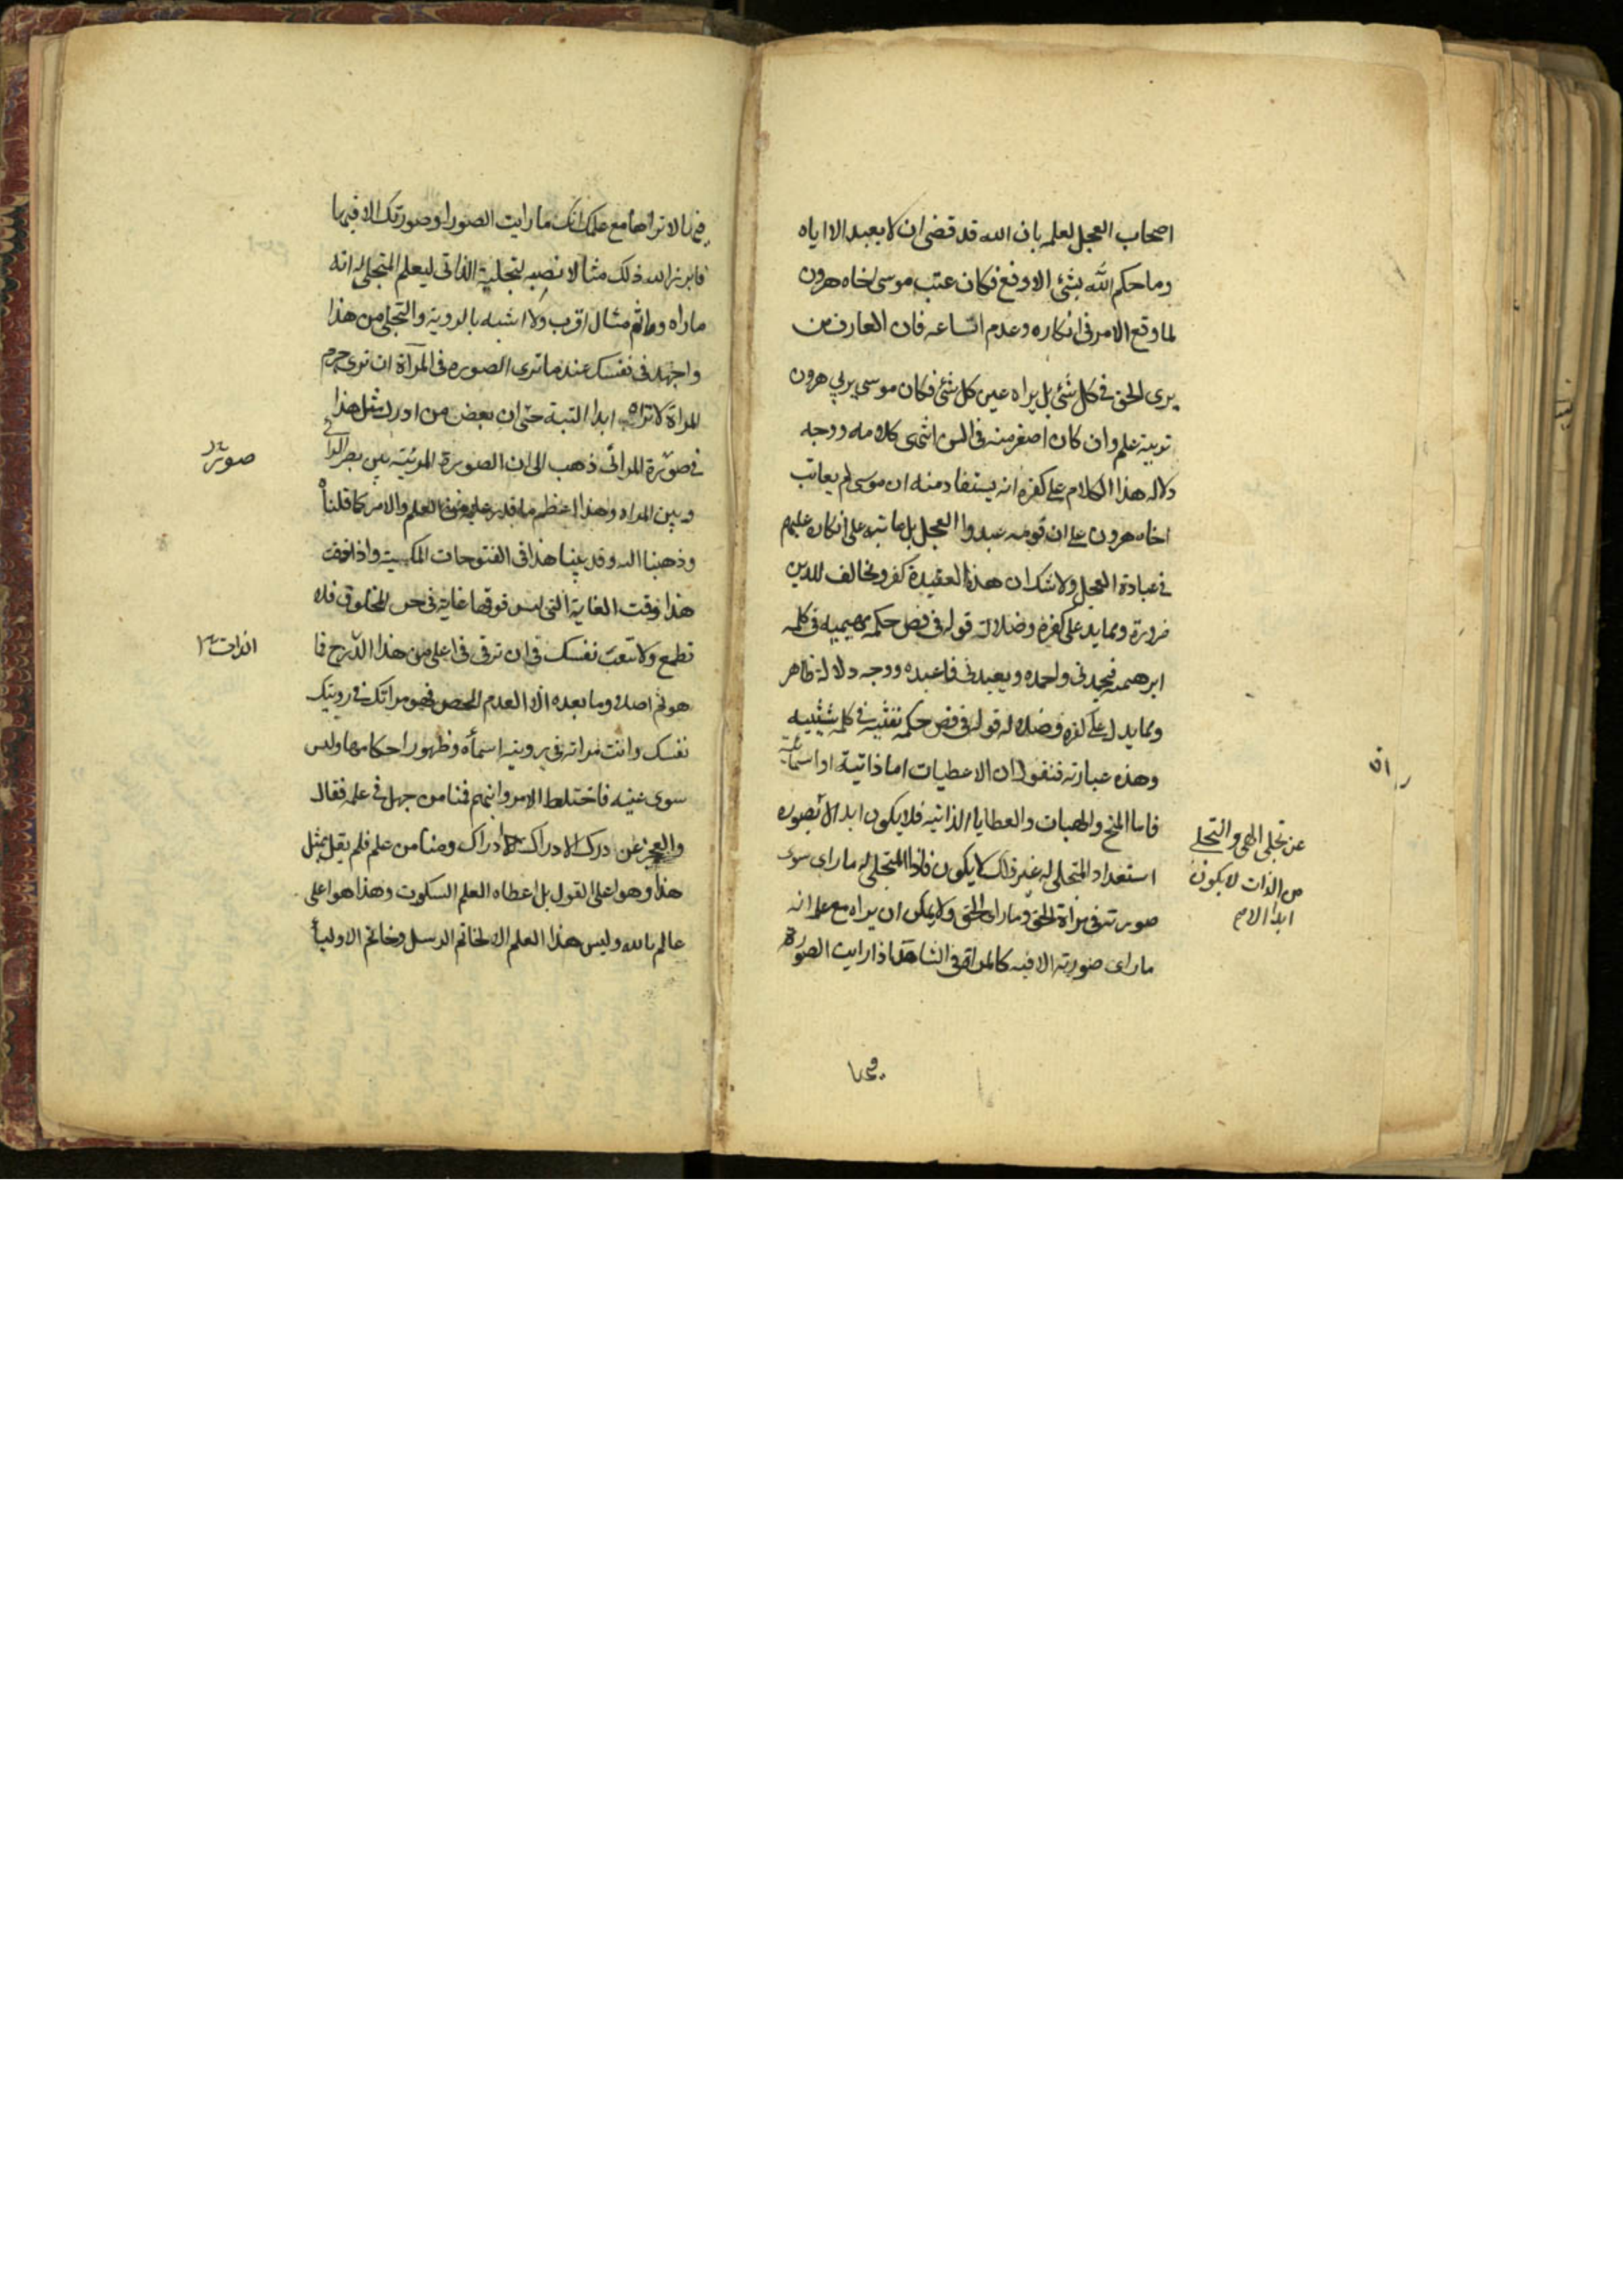 اصحاب العجل لعلمه بان الله قد قضى ان لا يعبد الا اياه
وما حكم الله بشئ الا وقع فكان عتب موسى اخاه هرون
لما وقع الامر فى انكاره وعدم اتساعه فان العارف من
يرى الحق فى كل شئ بل يراه عين كل شئ فكان موسى يربى هرون
تربية علم وان كان اصغر منه فى السن انتهى كلامه ووجه
دلاله هذا الكلام على كفره انه يستفاد منه ان موسى لم يعاتب
اخاه هرون على ان قومه عبدوا العجل بل عاتبه على انكاره عليهم
فى عبادة العجل ولا شك ان هذه العقيدة كفر ومخالف للدين
ضرورة ومما يدل على كفره وضلالته قوله فى فص حكمه مهيميه فى كلمه
ابرهيميه فيحمدنى واحمده ويعبدنى فاعبده ووجه دلالة ظاهر
ومما يدل على كفره وضلاله قوله فى فص حكمه نفثيه فى كلمه شيثيه
وهذه عبارته فنقول ان الاعطيات اما ذاتية او اسمائية
فاما المنح والهبات والعطايا الذاتيه فلا يكون ابدا الا بصوره
استعداد المتجلى له غير ذلك لا يكون فاذا المتجلى له ما راى سوى
صورته فى مراة الحق وما راى الحق ولا يمكن ان يراه مع علمه انه
ما راى صورته الا فيه كالمراة فى الشاهد اذا رايت الصورة
عن تجلى الهى والتجلى
من الذات لا يكون
ابدا الا
فيها لا تراها مع علمك انك ما رايت الصور او صورتك الا فيها
فابرز الله ذلك مثالا نصبه لتجليه الذاتى ليعلم المتجلى له انه
ماراه وما ثم مثال اقرب ولا اشبه بالروية والتجلى من هذا
واجهد فى نفسك عند ما ترى الصوره فى المرآة ان ترى جرم
المراة لا تراه ابدا البتة حتى ان بعض من ادرك مثل هذا
فى صورة المرائى ذهب الى ان الصورة المرئيته بين بصر الرائى
وبين المراه وهذا اعظم ما قدر عليه من العلم والامر كما قلناه
وذهبنا اليه وقد بينا هذا فى الفتوحات المكيية واذا ذقت
هذا ذقت الغاية التى ليس فوقها غاية فى حق المخلوق فلا
تطمع ولا تتعب نفسك فى ان ترقى فى اعلى من هذا الدرج فما
هو ثم اصلا وما بعده الا العدم المحض فهو مراتك فى رويتك
نفسك وانت مراته فى رويته اسمآه وظهور احكامها وليس
سوى عينه فاختلط الامر وانبهم فمنا من جهل فى علمه فقال
والعجز عن درك الادراك ادراك ومنا من علم فلم يقل بمثل
هذا وهو اعلى القول بل اعطاه العلم السكوت وهذا هو اعلى
عالم بالله وليس هذا العلم الا لخاتم الرسل وخاتم الاوليآ